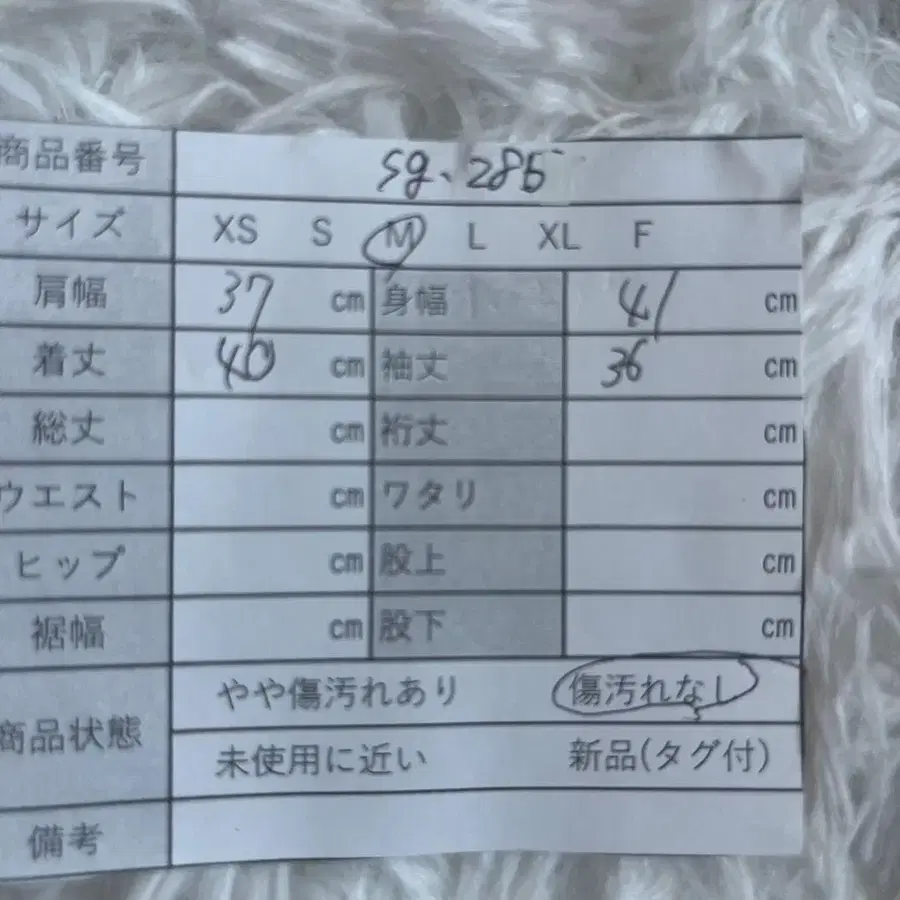 商品番号 sg.285
サイズ XS S M L XL F
肩幅 37 cm 身幅 41 cm
着丈 40 cm 袖丈 36 cm
総丈 cm 裄丈 cm
ウエスト cm ワタリ cm
ヒップ cm 股上 cm
裾幅 cm 股下 cm
商品状態 やや傷汚れあり 傷汚れなし
未使用に近い 新品(タグ付)
備考